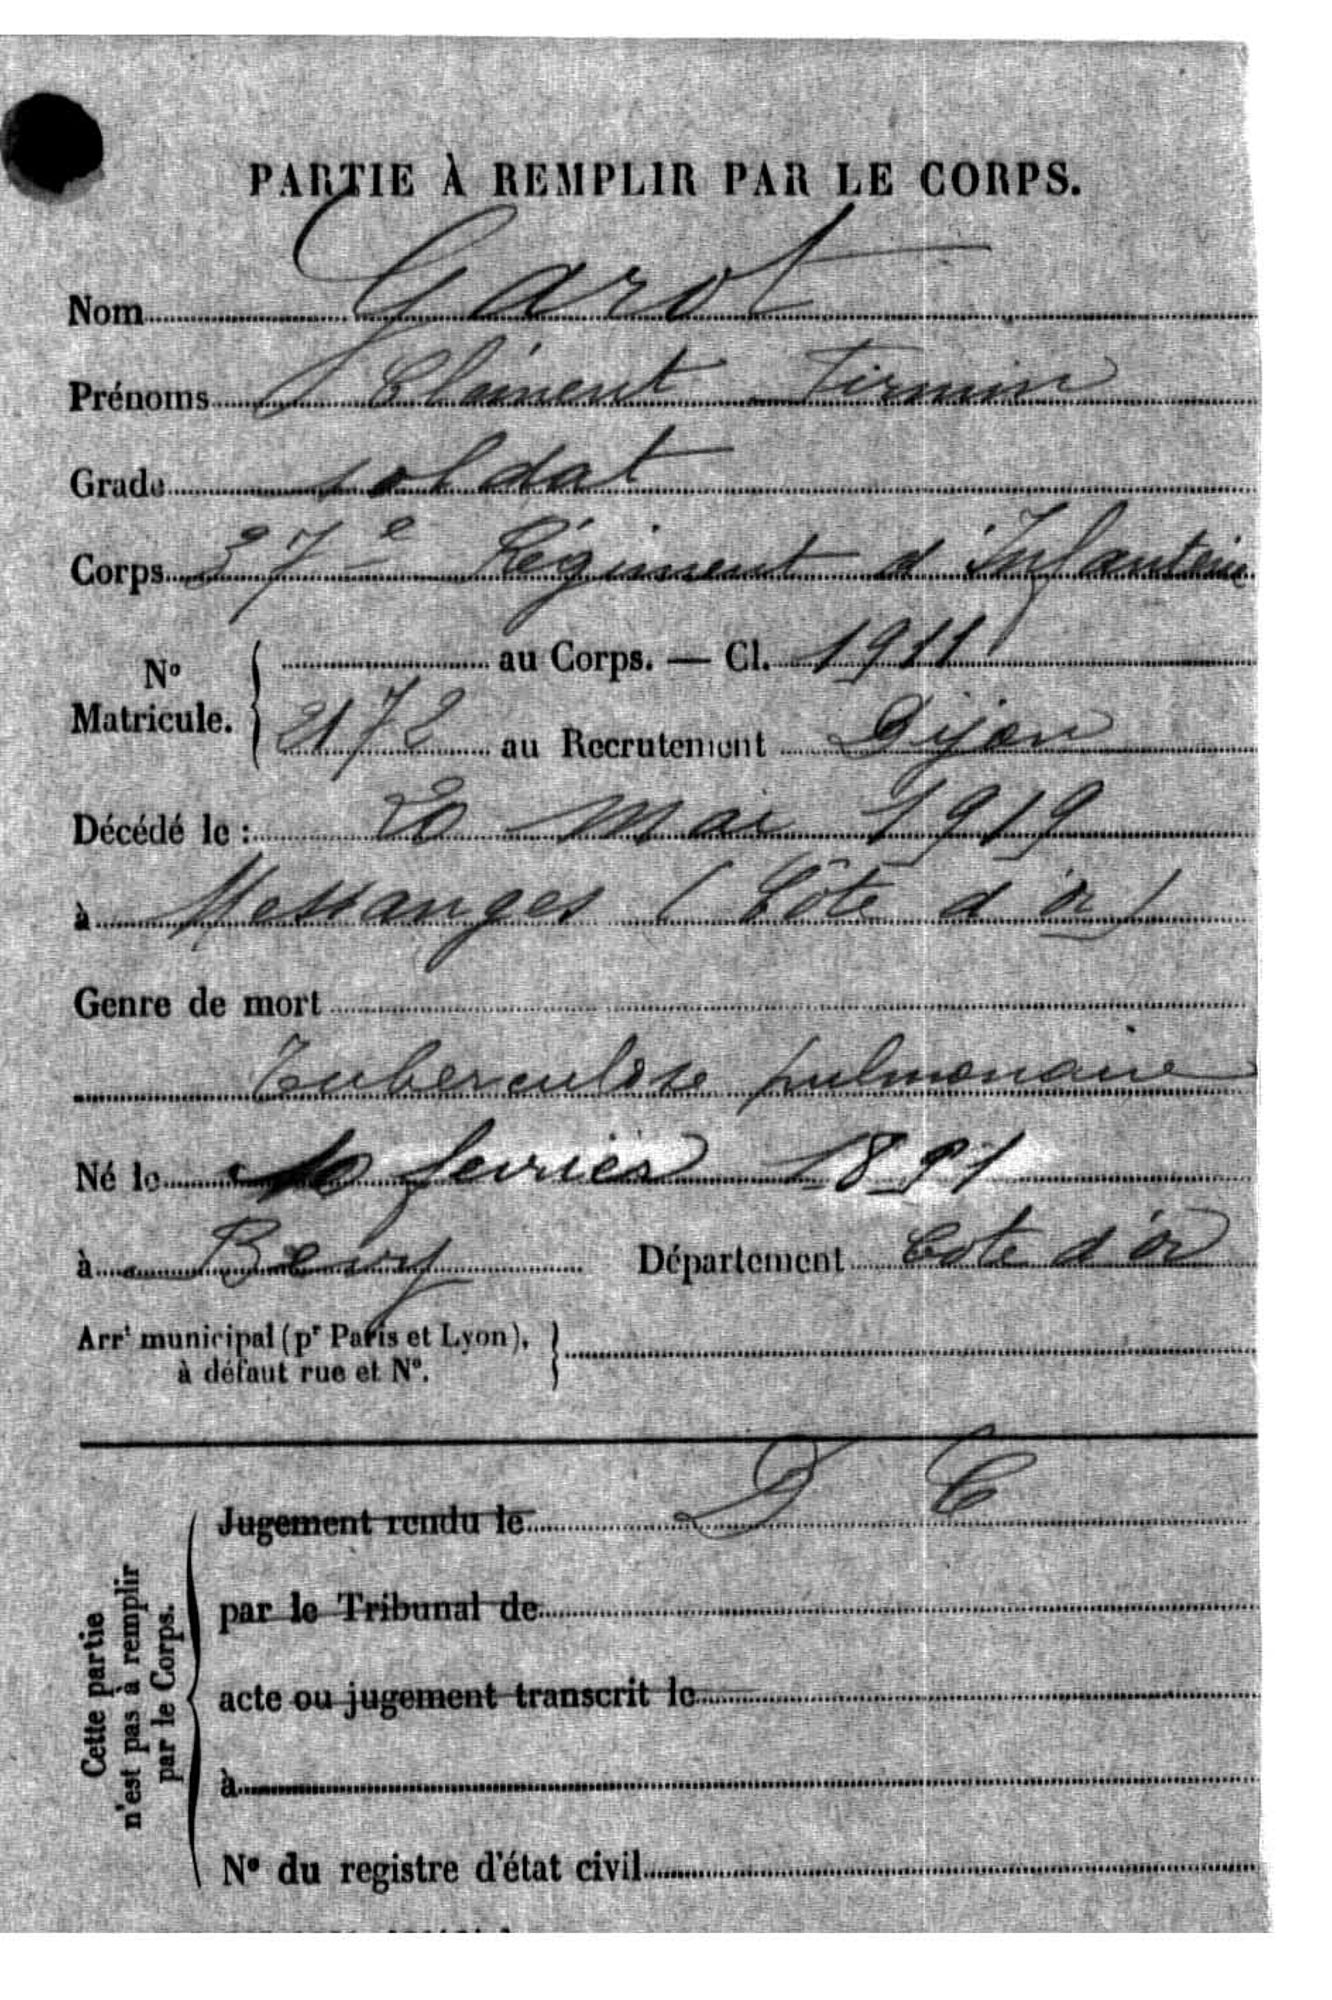 PARTIE À REMPLIR PAR LE CORPS.
Nom Garot
Prénoms Clément Firmin
Grade soldat
Corps 37e Régiment d'Infanterie
No Matricule. au Corps. — Cl. 1911
2172 au Recrutement Dijon
Décédé le : 20 Mai 1919
à Messanges (Côte d'or)
Genre de mort
Tuberculose pulmonaire
Né le 10 fevrier 1891
à Bevy Département Cote d'or
Arrt municipal (pr Paris et Lyon),
à défaut rue et No.
D C
Jugement rendu le
par le Tribunal de
acte ou jugement transcrit le
à
No du registre d'état civil
Cette partie
n'est pas à remplir
par le Corps.